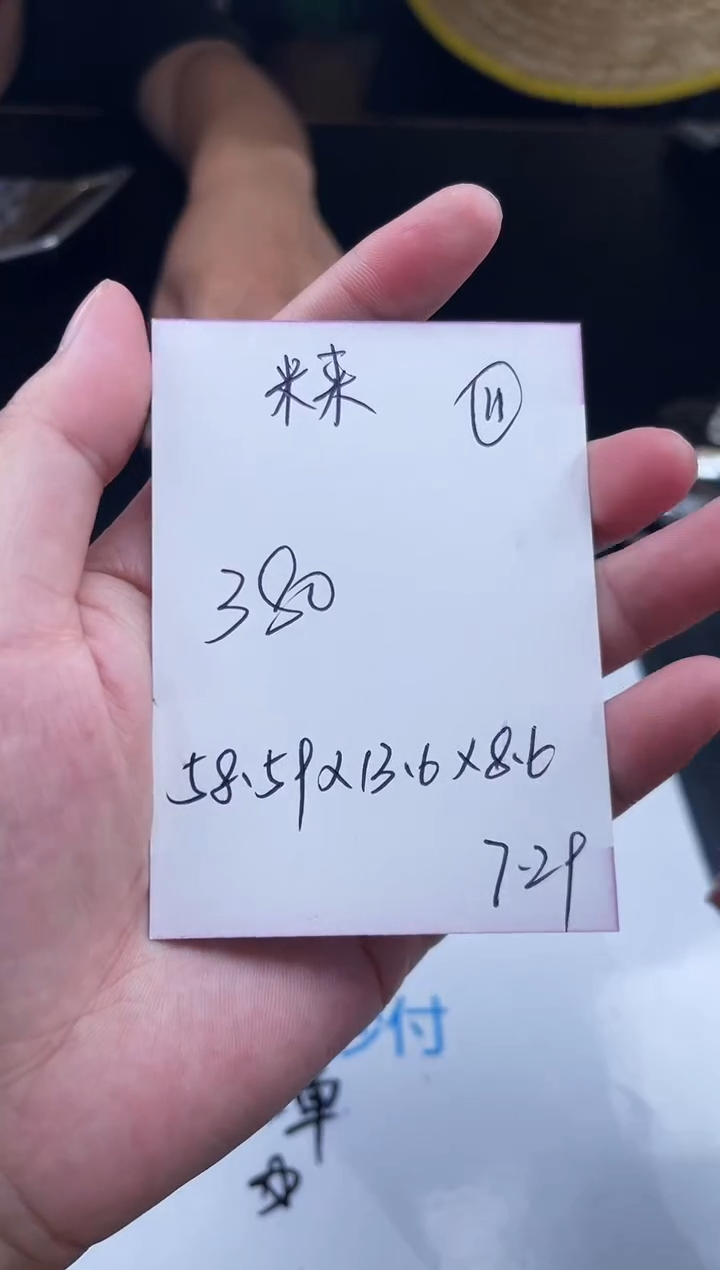 米来 11
380
58.59×13.6×8.6
7.29
付
单